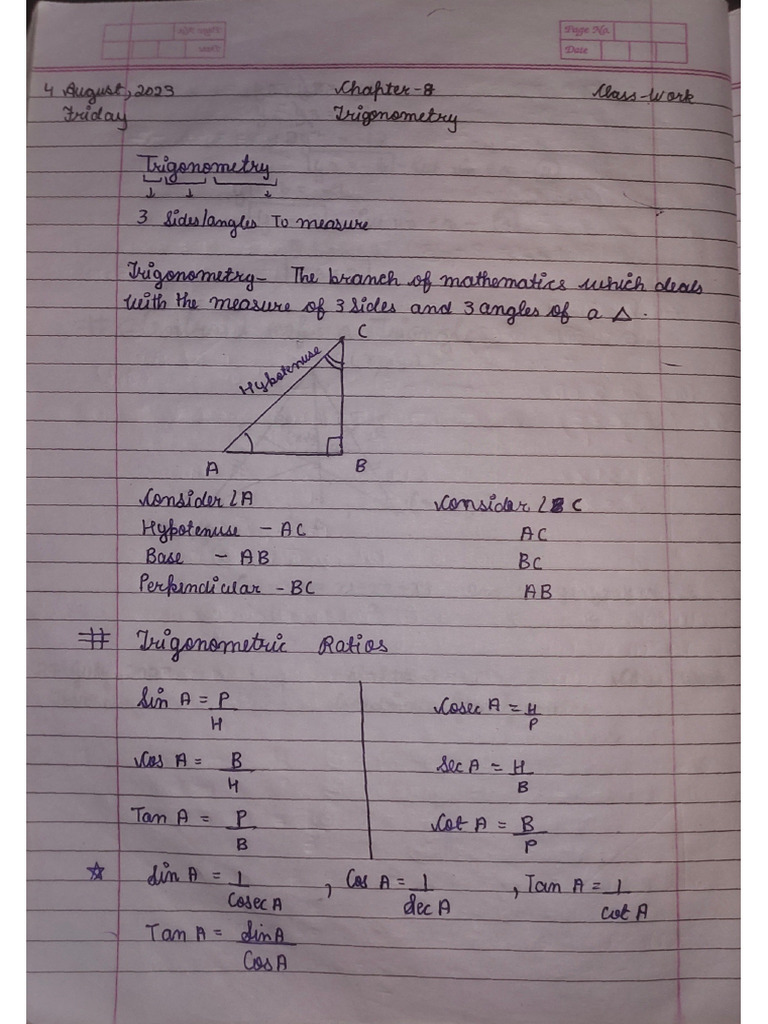 Page No.
Date
4 August, 2023 Chapter-8 Class-Work
Friday Trigonometry
Trigonometry
3 Sides/angles To measure
Trigonometry- The branch of mathematics which deals
with the measure of 3 sides and 3 angles of a △.
C
Hypotenuse
A B
Consider ∠A Consider ∠C
Hypotenuse - AC AC
Base - AB BC
Perpendicular - BC AB
# Trigonometric Ratios
Sin A = P/H Cosec A = H/P
Cos A = B/H Sec A = H/B
Tan A = P/B Cot A = B/P
☆ Sin A = 1/Cosec A , Cos A = 1/Sec A , Tan A = 1/Cot A
Tan A = Sin A/Cos A